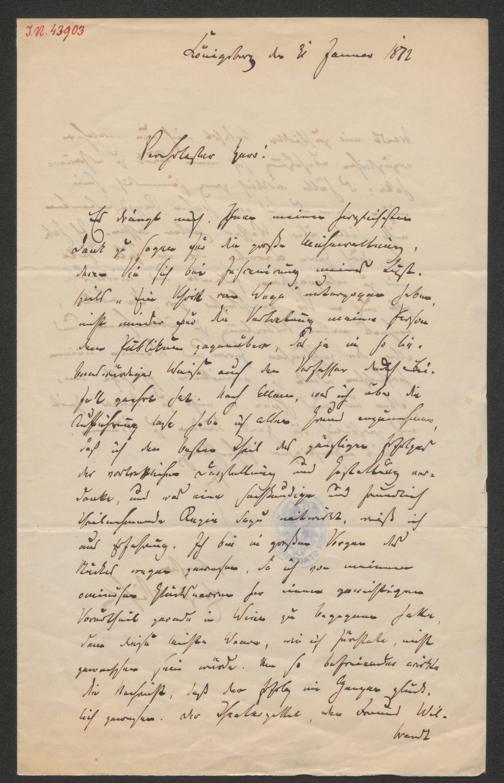 J.N. 43903
Königsberg den 31 Januar 1872
Verehrtester Herr!
Es drängt mich, Ihnen meinen herzlichsten
Dank zu sagen für die große Mühewaltung,
deren Sie sich bei Inscenirung meines Lust-
spiels „Ein Schritt vom Wege" unterzogen haben,
nicht minder für die Vertretung meiner Person
dem Publikum gegenüber, das ja in so lie-
benswürdiger Weise auch den Verfasser durch Bei-
fall geehrt hat. Nach Allem, was ich über die
Aufführung lese, habe ich allen Grund anzunehmen,
daß ich den besten Theil des günstigen Erfolges
der vortrefflichen Darstellung und Gestaltung ver-
danke, und was eine sachkundige und freundlich
theilnehmende Regie dazu mitwirkt, weiß ich
aus Erfahrung. Ich bin in großen Sorgen des
Stückes wegen gewesen, da ich von meinem
ominösen her einem gewichtigen
Vorurtheil gerade in Wien zu begegnen hatte,
dem diese leichte Waare, wie ich fürchtete, nicht
gewachsen sein würde. Um so befreiender wirkte
die Nachricht, daß der Erfolg im Ganzen glück-
lich gewesen. Der Theaterzettel, den Freund Wil-
brandt